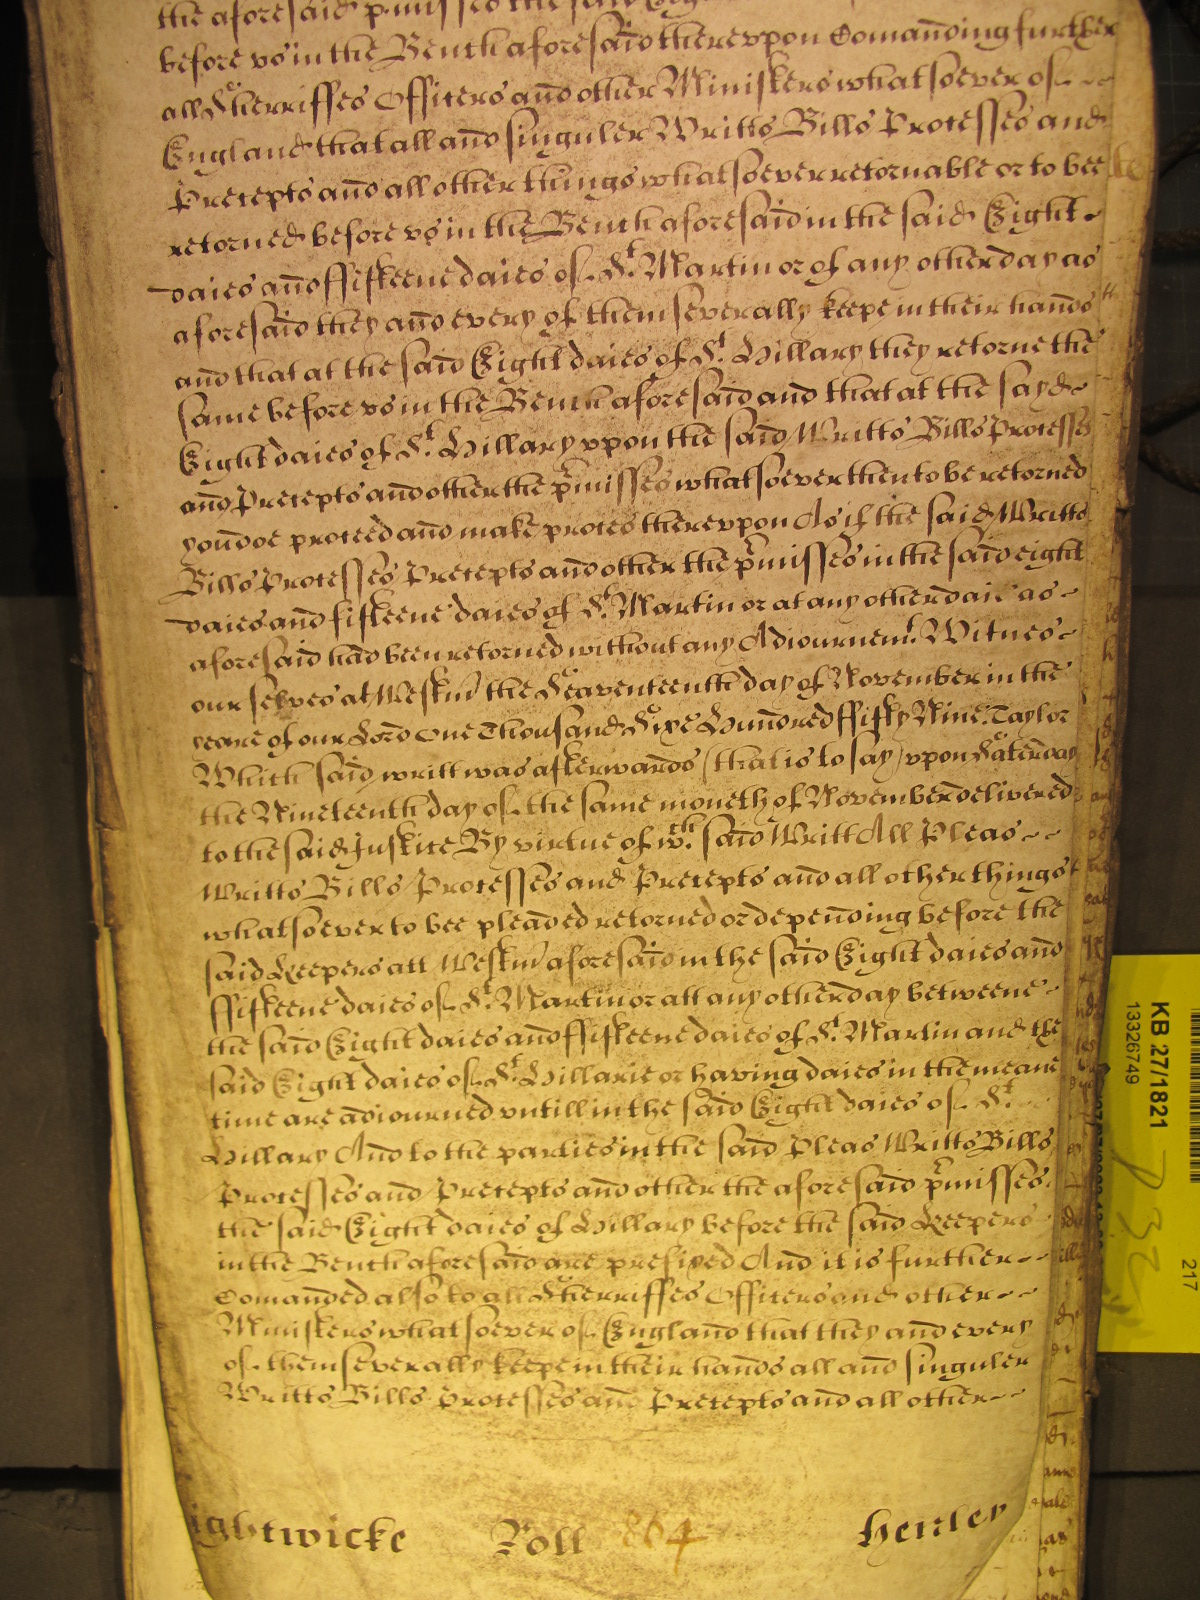 the aforesaid p.misses the said Eight
before vs in the Bench aforesaid therevpon Comanding further
all Sherriffes Officers and other Ministers whatsoever of
England that all and singuler Writts Bills Processes and
Precepts and all other things whatsoever retornable or to bee
retorned before vs in the Bench aforesaid in the said Eight
daies and ffifteene daies of St. Martin or of any other day as
aforesaid they and every of them severally keepe in their hands
and that at the said Eight daies of St. Hillary they retorne the
same before vs in the Bench aforesaid and that at the sayd
Eight daies of St. Hillary vpon the said Writts Bills Processes
and Precepts and other the p̃misses whatsoever then to be retorned
you doe proceed and make proces therevpon As if the said Writts
Bills Processes Precepts and other the p̃misses in the said eight
daies and fifteene daies of St. Martin or at any other daie as
aforesaid had been retorned without any Adiournemt. Witnes
our selves at Westmr the Seaventeenth day of November in the
yeare of our Lord One Thousand Sixe Hundred ffifty Nine. Taylor
Which said writt was afterwards (that is to say) vpon Saterday
the Nineteenth day of the same moneth of November delivered
to the said Justice By virtue of wch. said Writt All Pleas
Writts Bills Processes and Precepts and all other things
whatsoever to bee pleaded retorned or depending before the
said Keepers att Westmr aforesaid in the said Eight daies and
ffifteene daies of St. Martin or att any other day betweene
the said Eight daies and ffifteene daies of St. Martin and the
said Eight daies of St. Hillarie or having daies in the meane
time are adiourned vntill in the said Eight daies of St.
Hillary And to the parties in the said Pleas Writts Bills
Processes and Precepts and other the aforesaid p̃misses
the said Eight daies of Hillary before the said Keepers
in the Bench aforesaid are prefixed And it is further
Comanded also to all Sherriffes Officers and other
Ministers whatsoever of England that they and every
of them severally keepe in their hands all and singuler
Writts Bills Processes and Precepts and all other
ightwicke Roll 864 Henley
KB 27/1821
13326749
217